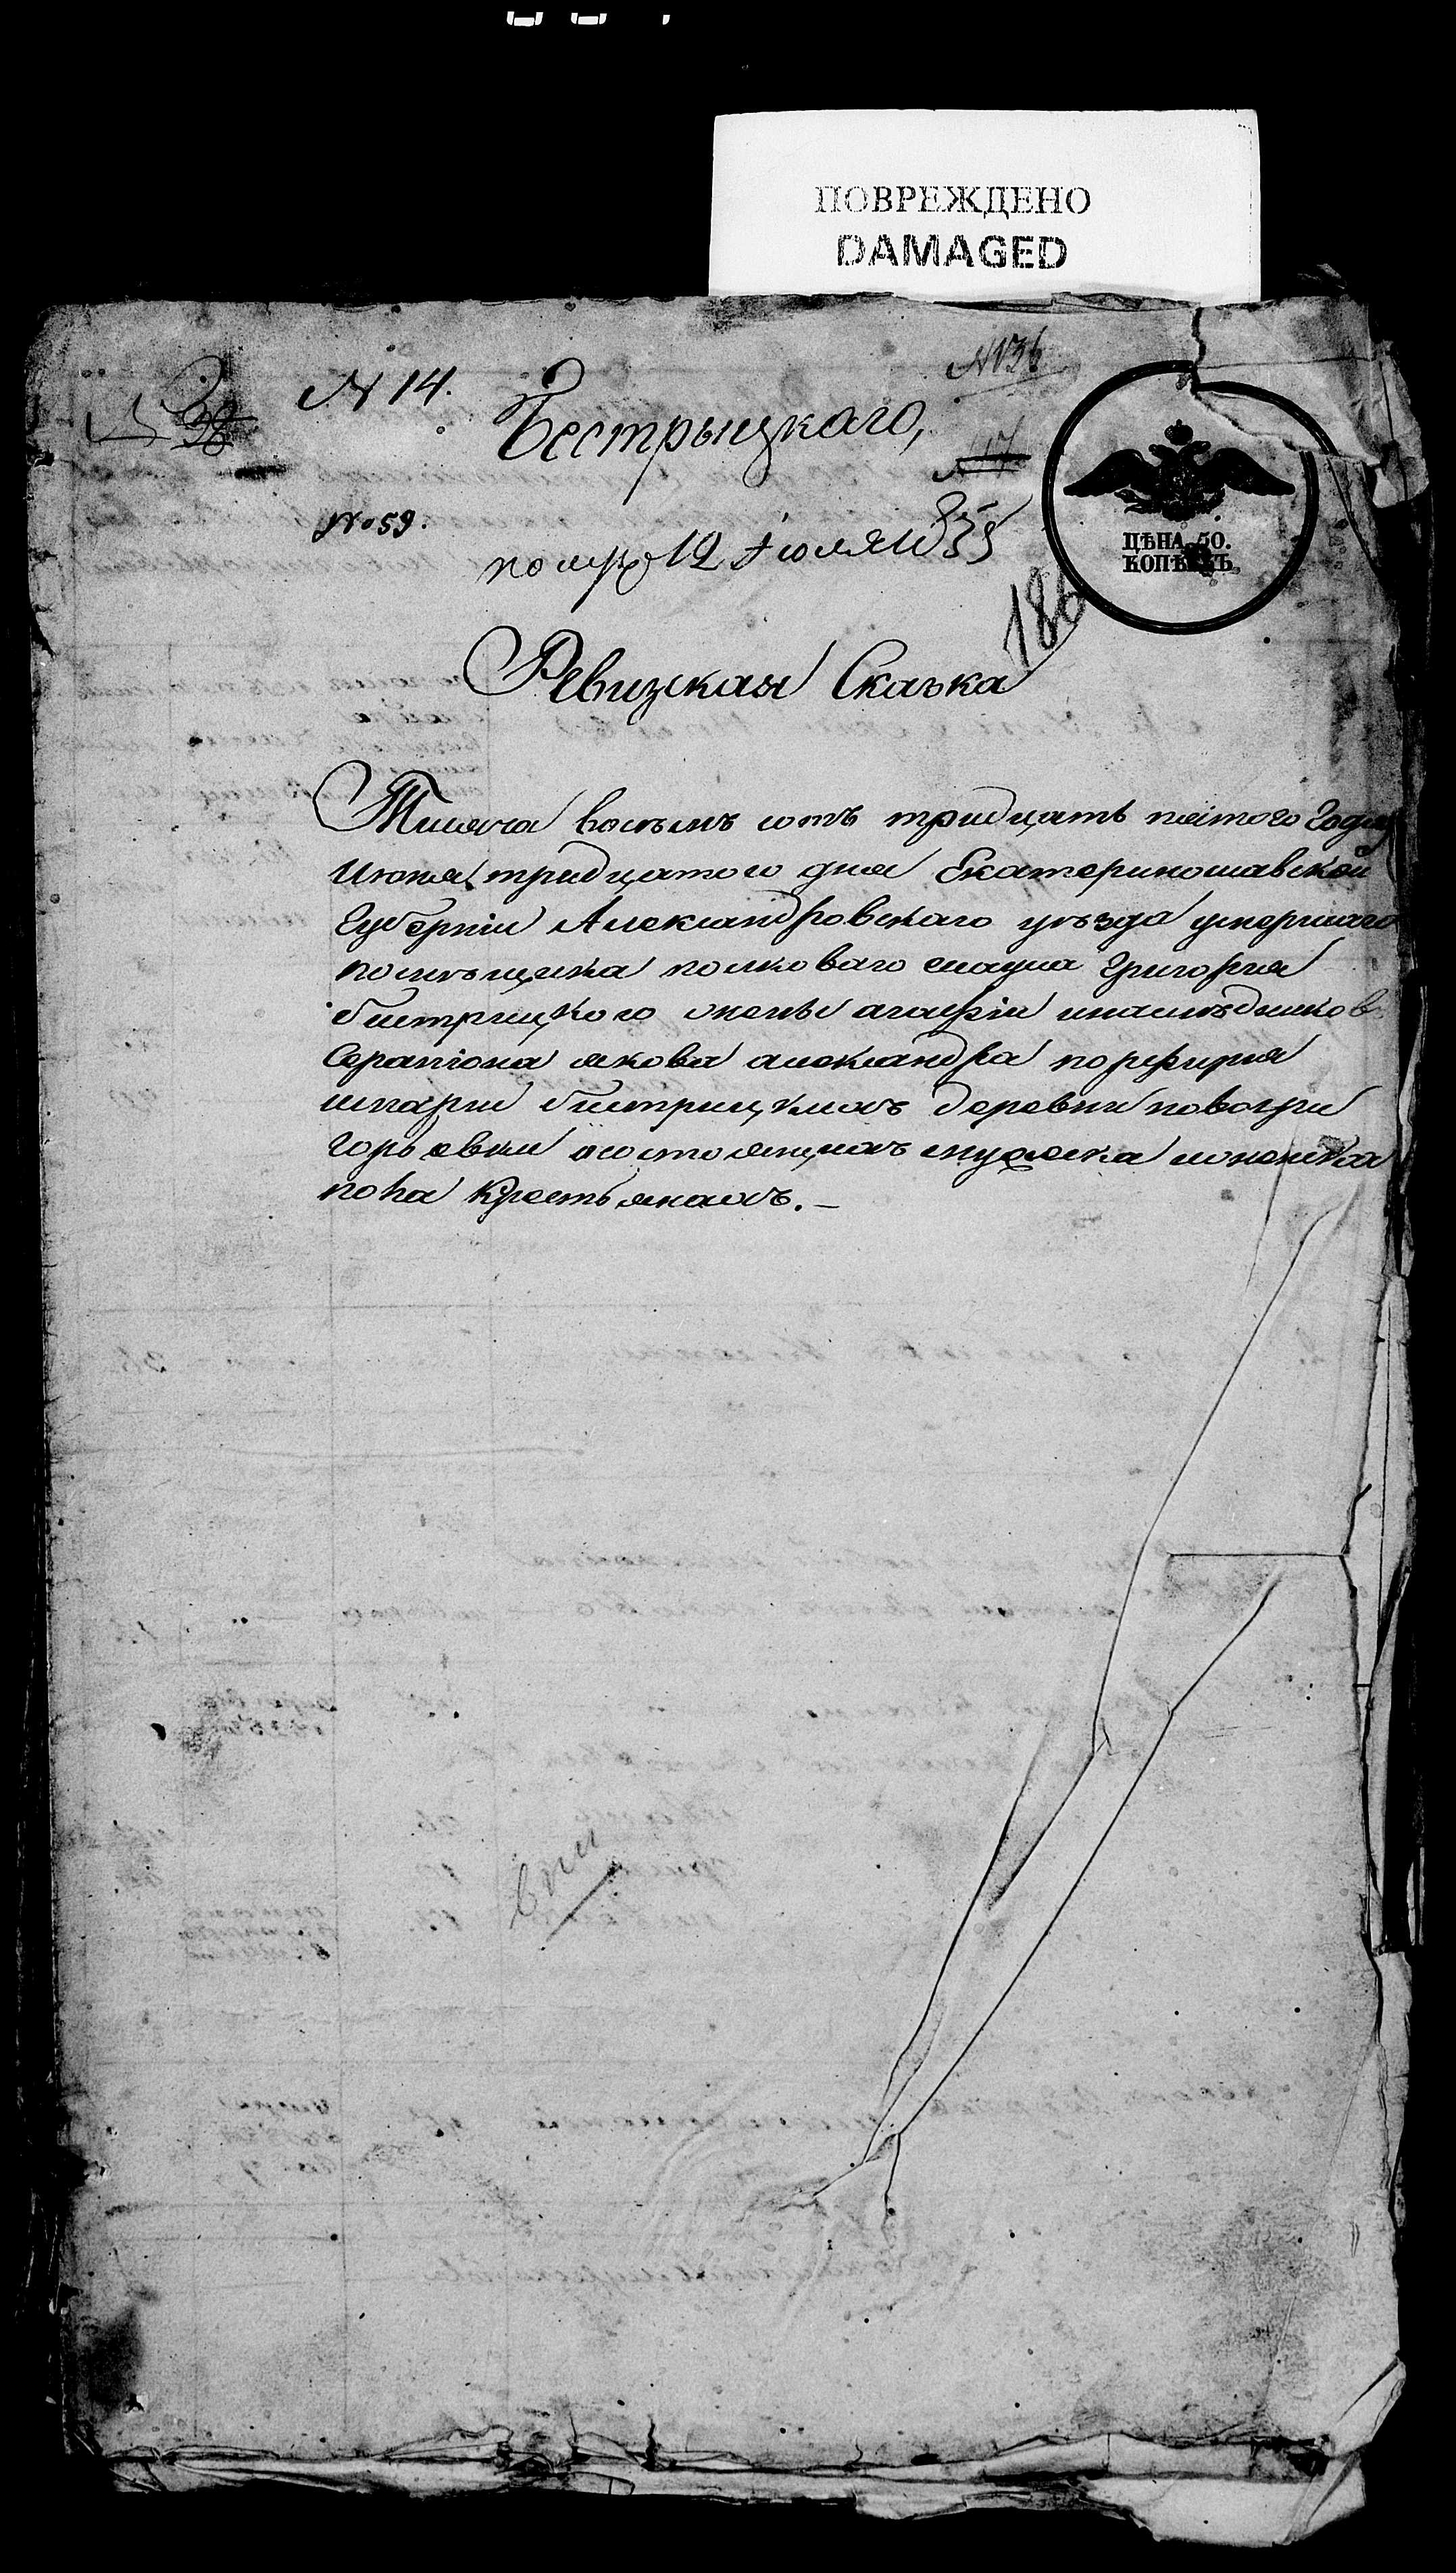 ПОВРЕЖДЕНО
DAMAGED
№ 14.
№ 136
№ 38
Бестрыцкаго,
№ 17
№ 59.
полу 12 Июля 1835
ЦѢНА 50.
КОПѢЕКЪ
186
Ревизская Сказка
Тисяча восъмъ сотъ тридцать пятого Года
Июня тридцатого дня Екатериношавской
Губерніи Александровскаго уѣзда умершаго
помѣщика полковаго есаула Григорія
бистрицкого жены агафіи инаслѣдников
Серапіона якова александра порфирия
имаріи бистрицкихъ деревни новогри
горьевки осостоящихъ мужеска иженска
пола крестьянахъ.